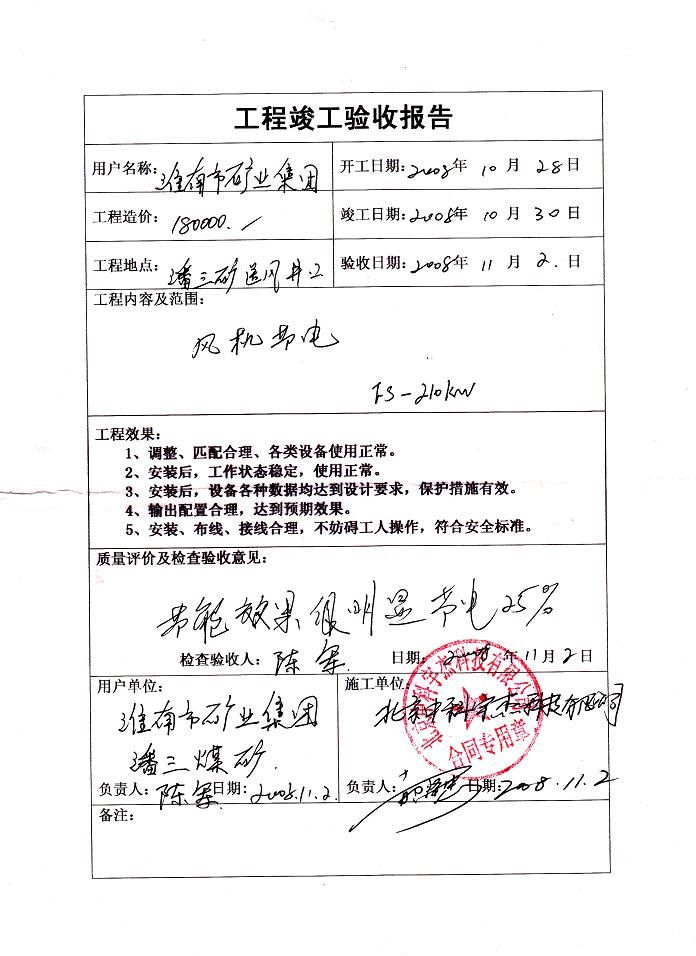 工程竣工验收报告
用户名称：淮南市矿业集团 开工日期：2008年 10 月 28 日
工程造价：180000. 竣工日期：2008年 10 月 30 日
工程地点：潘三矿送风井 验收日期：2008年 11 月 2. 日
工程内容及范围：
风机节电
FS-210kW
工程效果：
1、调整、匹配合理、各类设备使用正常。
2、安装后，工作状态稳定，使用正常。
3、安装后，设备各种数据均达到设计要求，保护措施有效。
4、输出配置合理，达到预期效果。
5、安装、布线、接线合理，不妨碍工人操作，符合安全标准。
质量评价及检查验收意见：
节能效果很明显节电25%
检查验收人：陈军 日期：2008年11月2日
用户单位： 施工单位
淮南市矿业集团 北京中科宇杰科技有限公司
潘三煤矿.
合同专用章
负责人：陈军 日期：2008.11.2. 负责人： 日期：2008.11.2
备注：